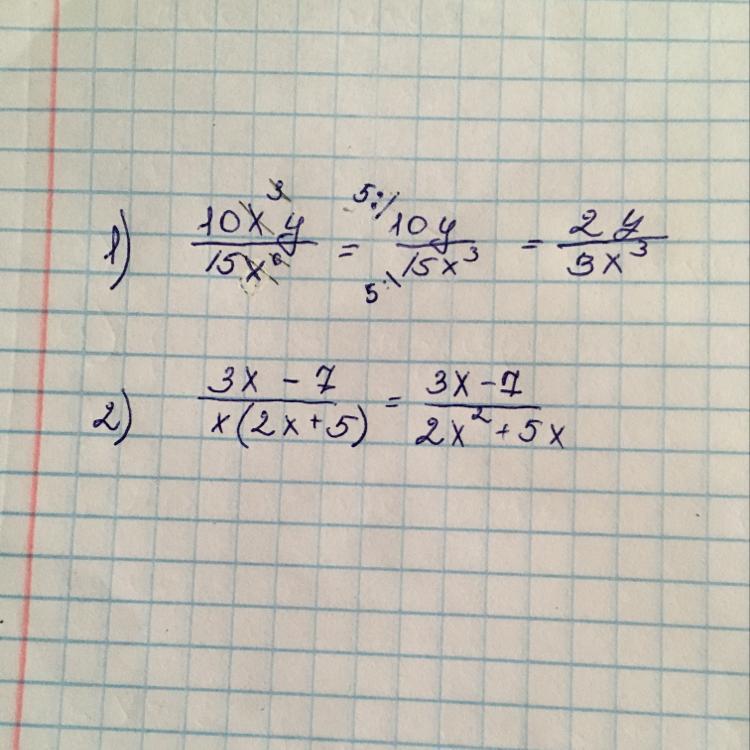 1) 10x³y / 15x⁶ = 5:/ 10y / 5:\ 15x³ = 2y / 3x³
2) 3x - 7 / x(2x+5) = 3x-7 / 2x²+5x